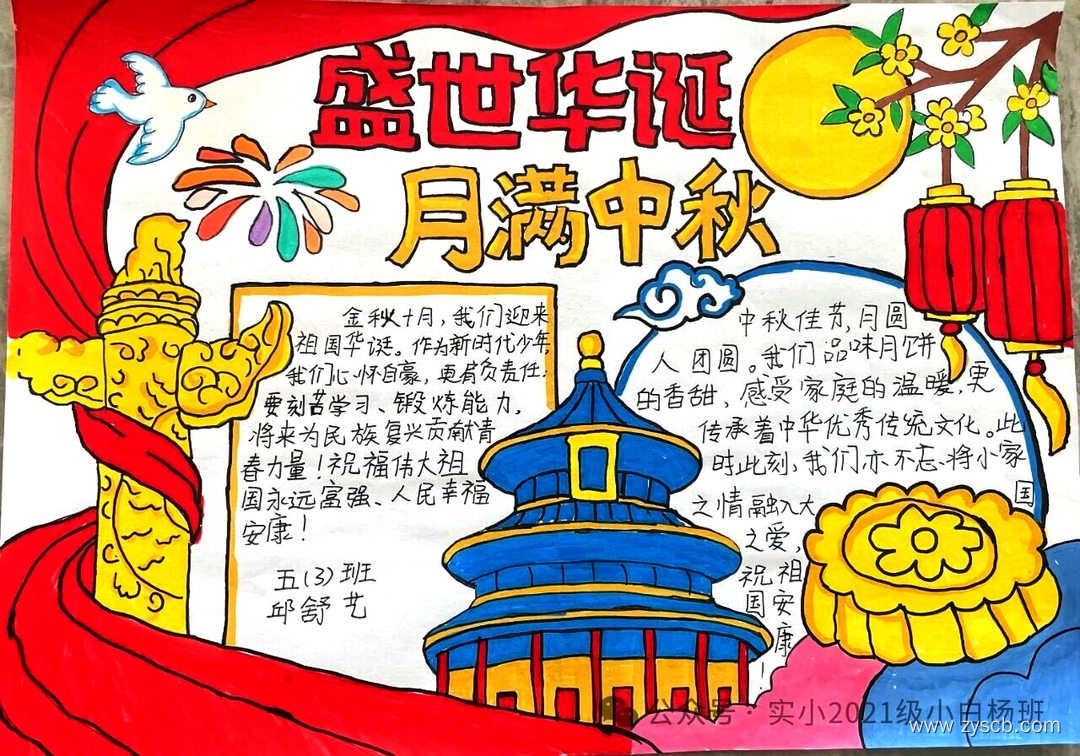 盛世华诞
月满中秋
金秋十月，我们迎来
祖国华诞。作为新时代少年，
我们心怀自豪，更肩负责任：
要刻苦学习、锻炼能力，
将来为民族复兴贡献青
春力量！祝福伟大祖
国永远富强、人民幸福
安康！
五（3）班
邱舒艺
中秋佳节，月圆
人团圆。我们品味月饼
的香甜，感受家庭的温暖，更
传承着中华优秀传统文化。此
时此刻，我们亦不忘将小家
之情融入大国
之爱，
祝祖
国安
康！
公众号·实小2021级小白杨班
www.zyscb.com